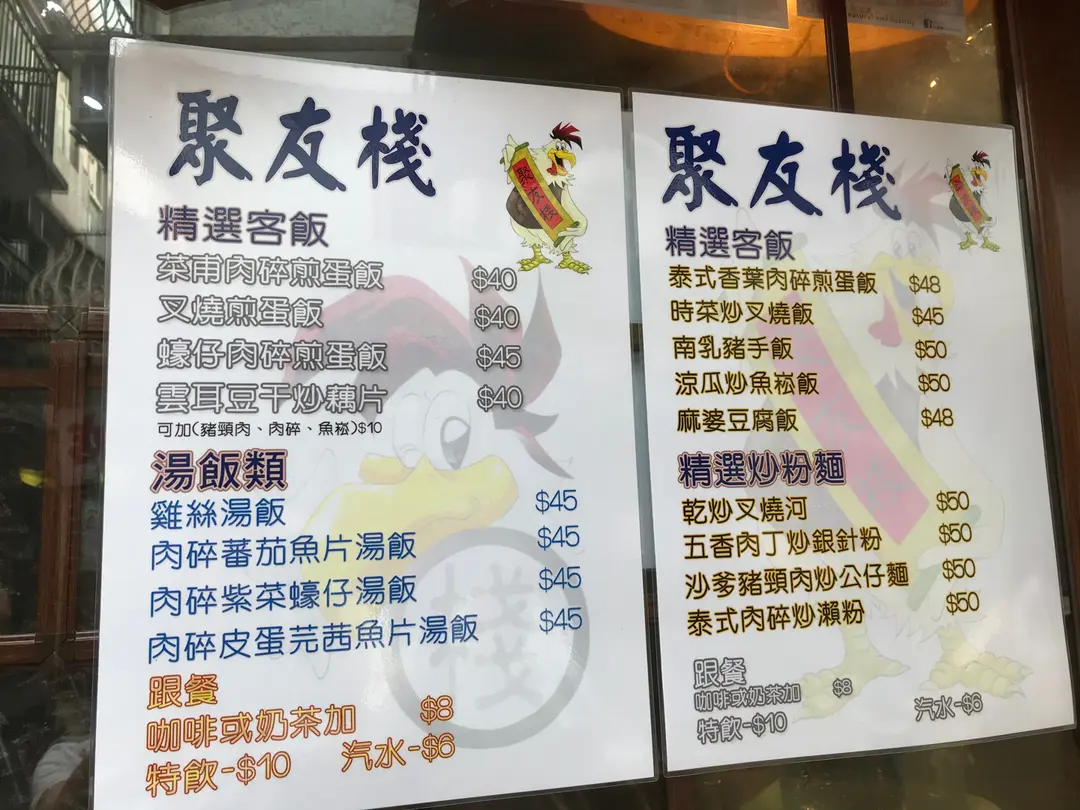 聚友棧
聚友棧
精選客飯
菜甫肉碎煎蛋飯 $40
叉燒煎蛋飯 $40
蠔仔肉碎煎蛋飯 $45
雲耳豆干炒藕片 $40
可加(豬頸肉、肉碎、魚崧)$10
湯飯類
雞絲湯飯 $45
肉碎蕃茄魚片湯飯 $45
肉碎紫菜蠔仔湯飯 $45
肉碎皮蛋芫茜魚片湯飯 $45
棧
跟餐
咖啡或奶茶加 $8
特飲-$10 汽水-$6
聚友棧
聚友棧
精選客飯
泰式香葉肉碎煎蛋飯 $48
時菜炒叉燒飯 $45
南乳豬手飯 $50
涼瓜炒魚崧飯 $50
麻婆豆腐飯 $48
精選炒粉麵
乾炒叉燒河 $50
五香肉丁炒銀針粉 $50
沙爹豬頸肉炒公仔麵 $50
泰式肉碎炒瀨粉 $50
跟餐
咖啡或奶茶加 $8
特飲-$10 汽水-$6